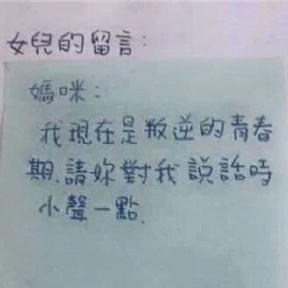 女兒的留言:
媽咪:
我現在是叛逆的青春
期.請妳對我說話時
小聲一點.